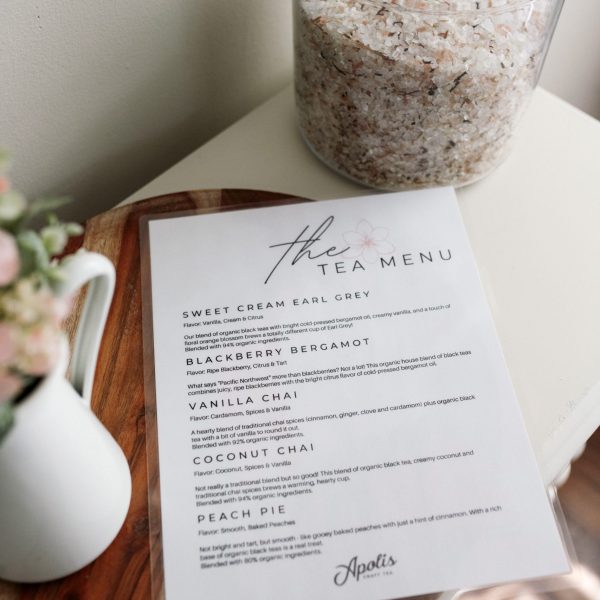 the
TEA MENU
SWEET CREAM EARL GREY
Flavor: Vanilla, Cream & Citrus
Our blend of organic black teas with bright cold-pressed bergamot oil, creamy vanilla, and a touch of
floral orange blossom brews a totally different cup of Earl Grey!
Blended with 94% organic ingredients.
BLACKBERRY BERGAMOT
Flavor: Ripe Blackberry, Citrus & Tart
What says "Pacific Northwest" more than blackberries? Not a lot! This organic house blend of black teas
combines juicy, ripe blackberries with the bright citrus flavor of cold-pressed bergamot oil.
VANILLA CHAI
Flavor: Cardamom, Spices & Vanilla
A hearty blend of traditional chai spices (cinnamon, ginger, clove and cardamom) plus organic black
tea with a bit of vanilla to round it out.
Blended with 92% organic ingredients.
COCONUT CHAI
Flavor: Coconut, Spices & Vanilla
Not really a traditional blend but so good! This blend of organic black tea, creamy coconut and
traditional chai spices brews a warming, hearty cup.
Blended with 94% organic ingredients.
PEACH PIE
Flavor: Smooth, Baked Peaches
Not bright and tart, but smooth - like gooey baked peaches with just a hint of cinnamon. With a rich
base of organic black teas is a real treat.
Blended with 80% organic ingredients.
Apolis
CRAFT TEA